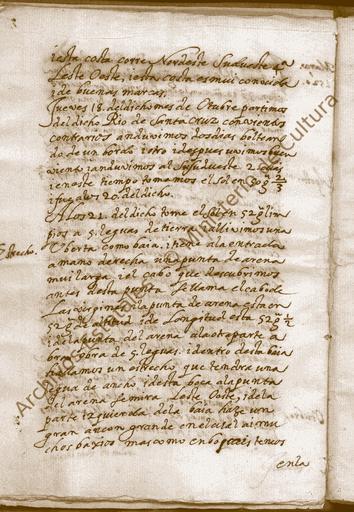 iesta costa corre Nordeste Sudueste 4ª
Leste Oeste, iesta costa es mui conocida
i de buenas marcas.
Jueves 18 del dicho mes de Otubre partimos
del dicho Rio de Santa Cruz con vientos
contrarios anduvimos dos dias boltean
do de un bordo i otro i despues uvimos buen
viento i anduvimos al Susudueste 2
i en este tiempo tomamos el Sol en 50 g. 2/3
i fue a los 20 del dicho.
A los 21. del dicho tome el Sol en 52 g. lim
pios a 5. leguas de tierra alli vimos una
Estrecho.
Oberta como baia, i tiene a la entrada
a mano derecha una punta de arena
mui larga i el cabo que descubrimos
antes desta punta se llama el cabo de
Las virgines i la punta de arena esta en
52 g. de altitud i de Longitud esta 52 g. 1/2
i de la punta del arena a la otra parte a
bra obra de 5. leguas. i dentro desta baia
hallamos un estrecho que tendra una
legua de ancho i desta boca a la punta
del arena se mira Leste Oeste, i de la
parte izquierda de la baia haze un
gran ancon grande en el cual ai mu
chos baxios mas como enbocais teneos
en la
Archivo Histórico Nacional
Ministerio de Cultura